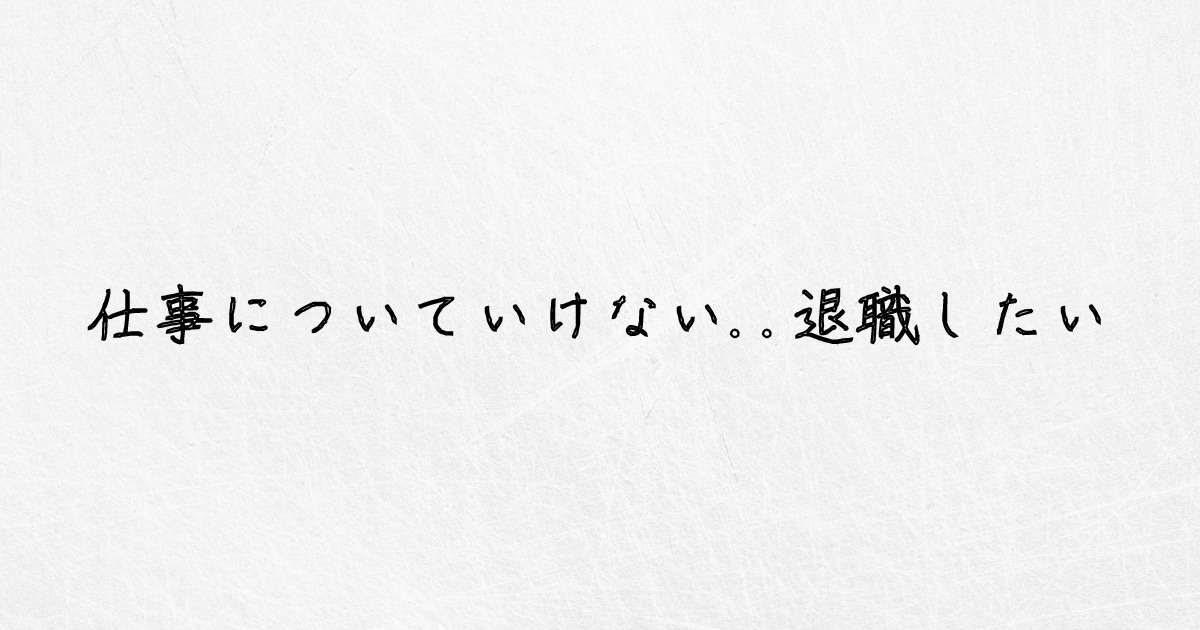 仕事についていけない。。退職したい